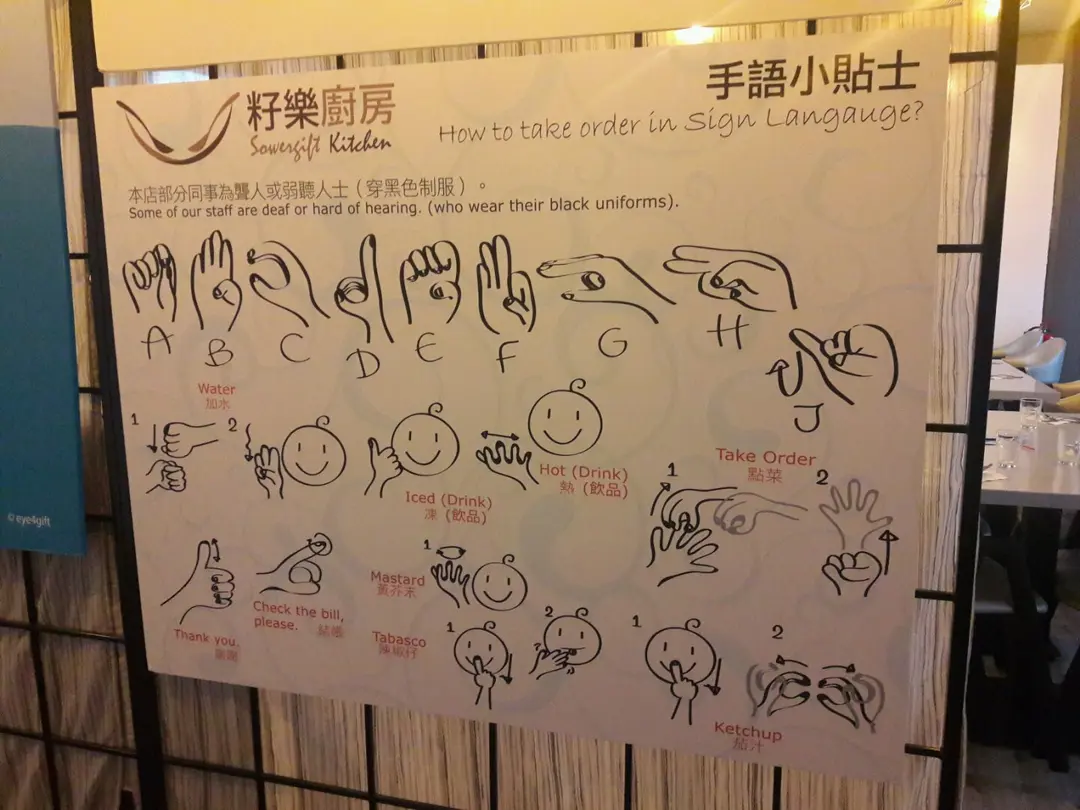 籽樂廚房
Sowergift Kitchen
手語小貼士
How to take order in Sign Langauge?
本店部分同事為聾人或弱聽人士（穿黑色制服）。
Some of our staff are deaf or hard of hearing. (who wear their black uniforms).
A B C D E F G H
J
Water
加水
1 2
Iced (Drink)
凍 (飲品)
Hot (Drink)
熱 (飲品)
Take Order
點菜
1 2
Thank you.
謝謝
Check the bill,
please. 結帳
Mastard
黃芥末
1
Tabasco
辣椒仔
1 2
1 2
Ketchup
茄汁
© eye4gift